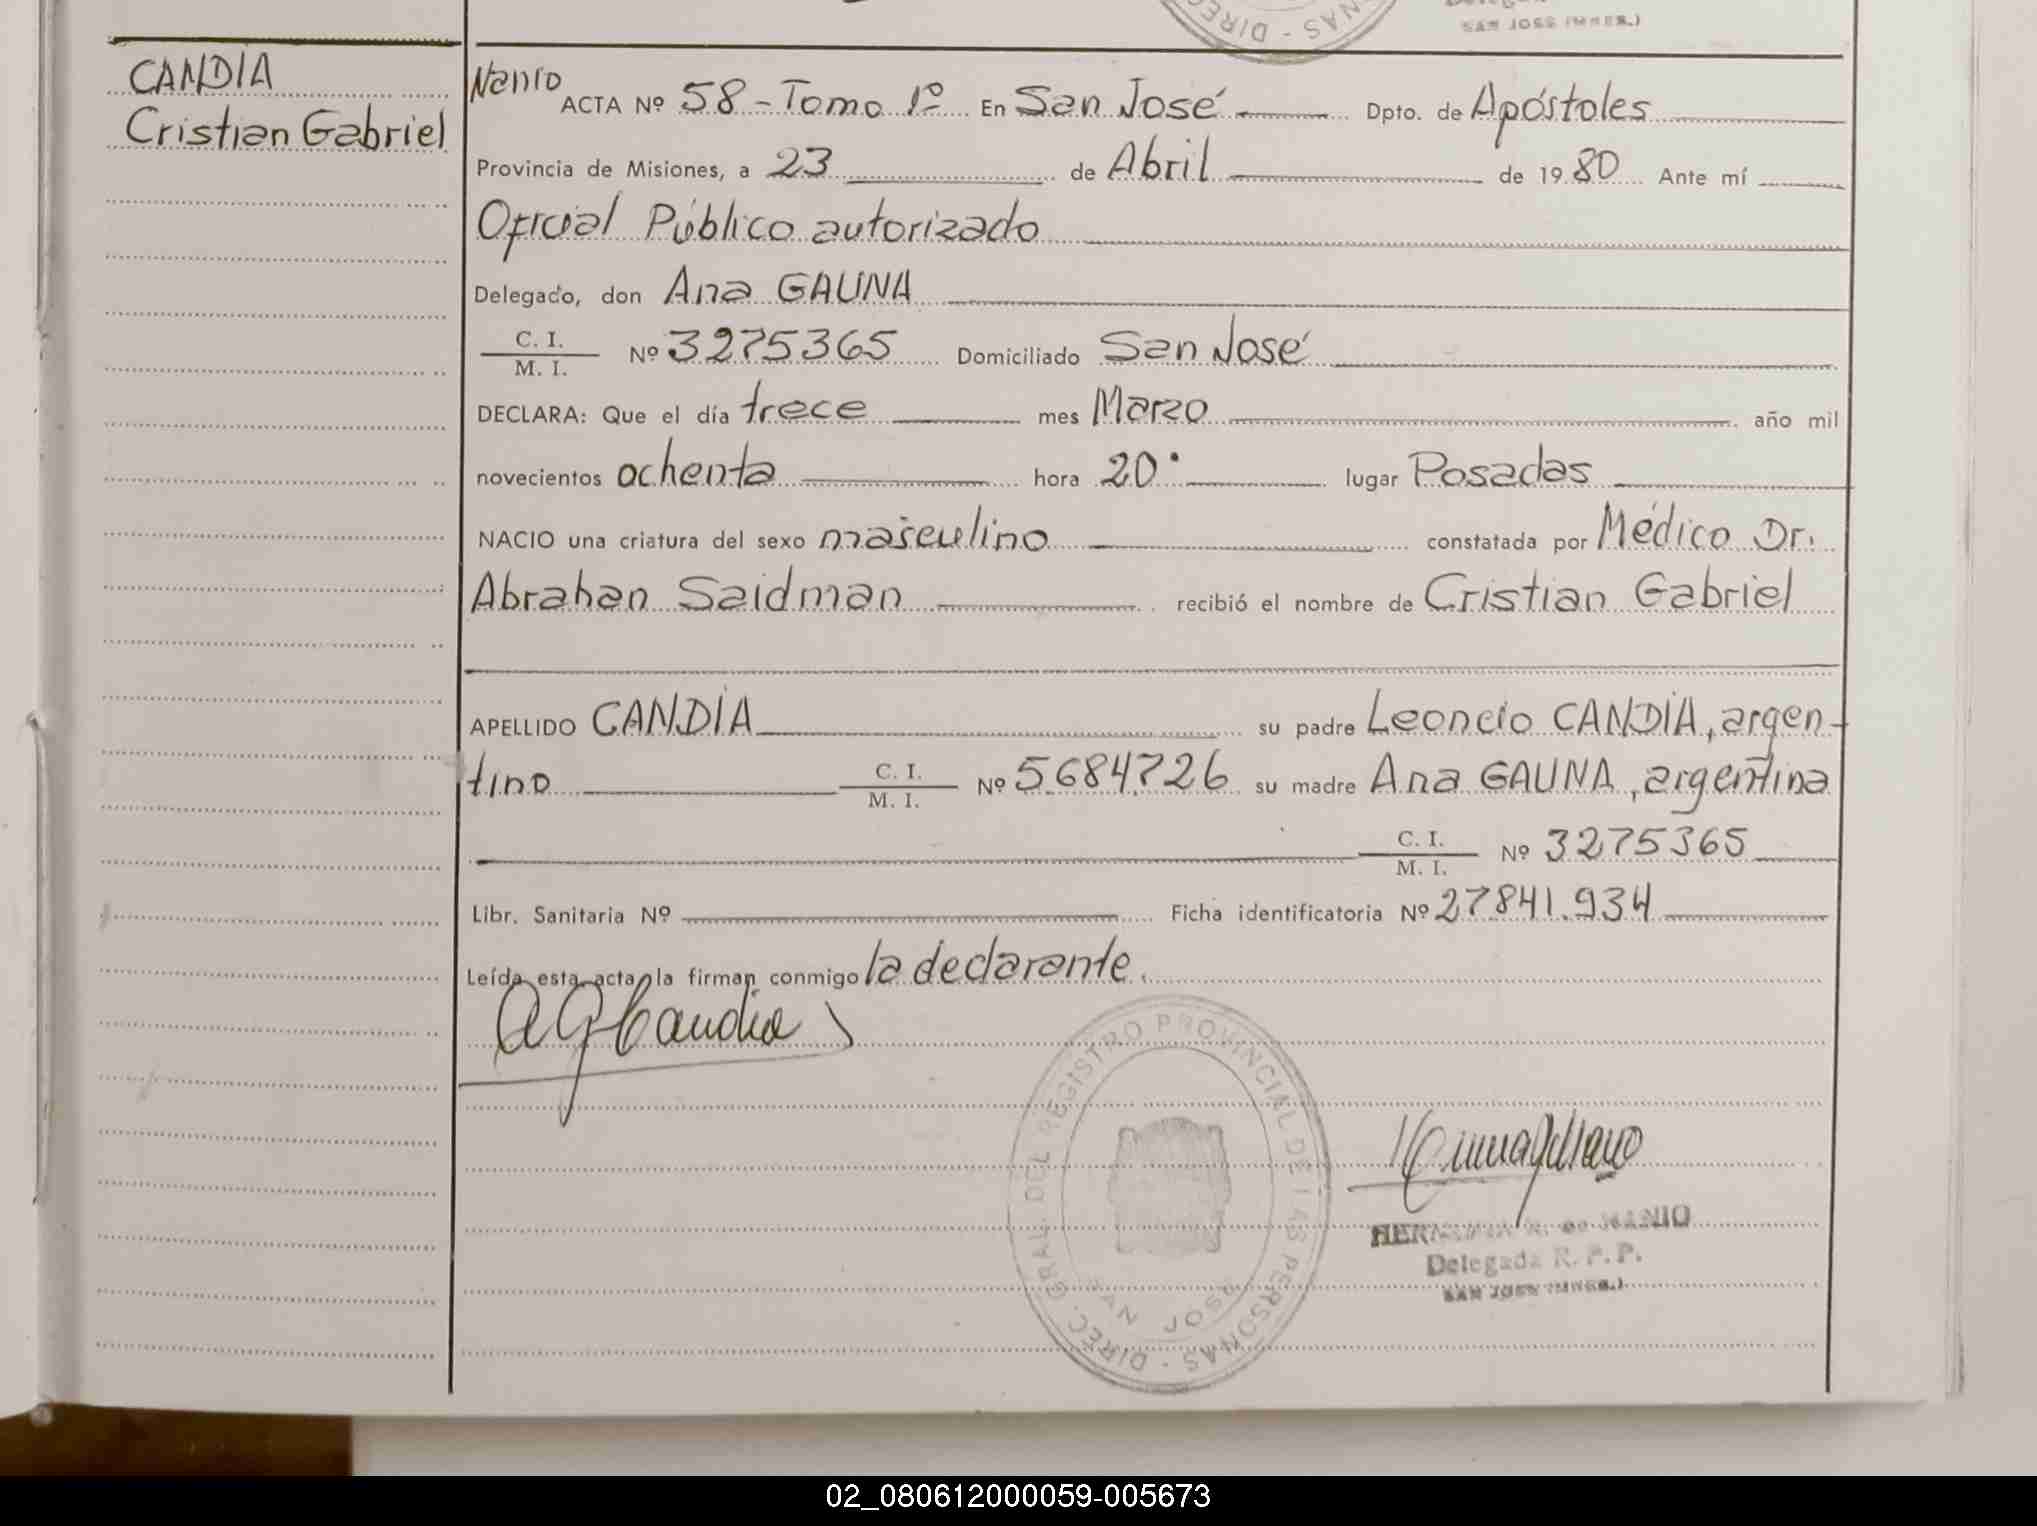 SAN JOSE (MNES.)
CANDIA
Cristian Gabriel
ACTA Nº 58 - Tomo 1º En San José Dpto. de Apóstoles
Provincia de Misiones, a 23 de Abril de 1980 Ante mí
Oficial Público autorizado
Delegado, don Ana GAUNA
C. I.
M. I. Nº 3275365 Domiciliado San José
DECLARA: Que el día trece mes Marzo año mil
novecientos ochenta hora 20· lugar Posadas
NACIO una criatura del sexo masculino constatada por Médico Dr.
Abrahan Saidman recibió el nombre de Cristian Gabriel
APELLIDO CANDIA su padre Leoncio CANDIA, argen-
tino C. I. M. I. Nº 5684726 su madre Ana GAUNA, argentina
C. I. M. I. Nº 3275365
Libr. Sanitaria Nº Ficha identificatoria Nº 27841.934
Leída esta acta, la firman conmigo la declarante.
AGCandia
DIREC. GRAL. DEL REGISTRO PROVINCIAL DE LAS PERSONAS -
SAN JOSE
de
Delegada R. P. P.
SAN JOSE (MNES.)
02_080612000059-005673